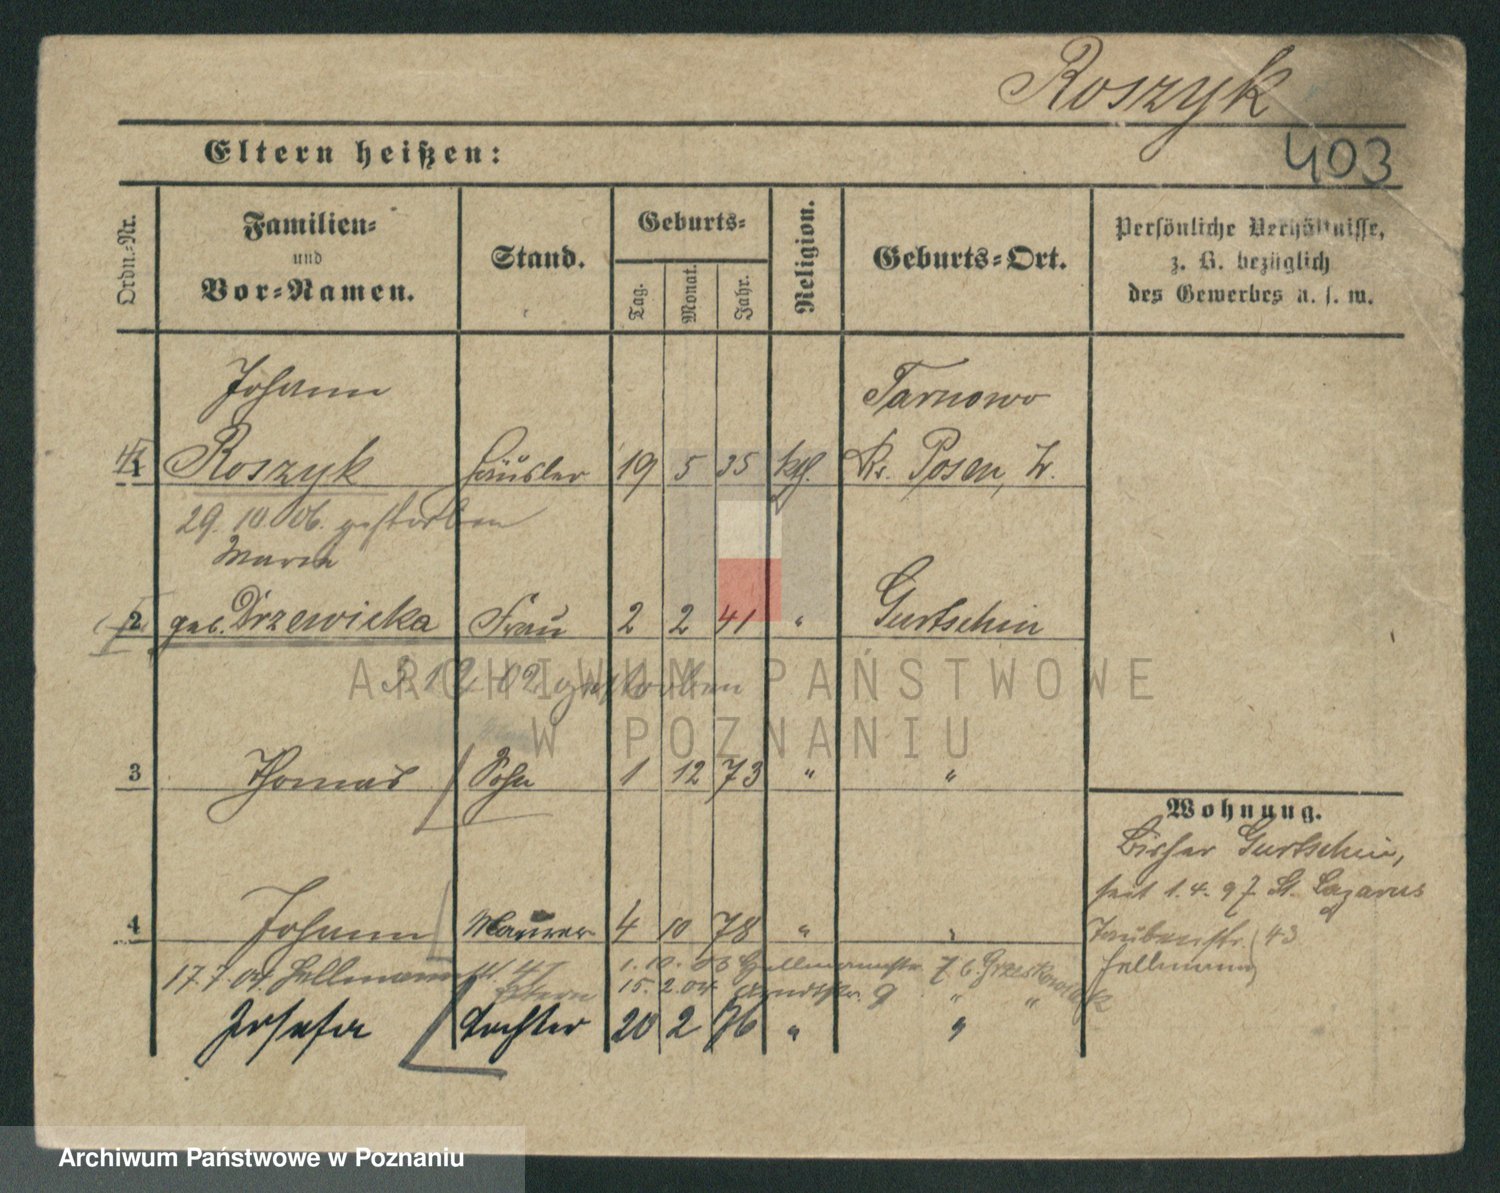 Roszyk
403
Eltern heißen:
Ordn.-Nr.
Familien-
und
Vor-Namen.
Stand.
Geburts-
Tag.
Monat.
Jahr.
Religion.
Geburts-Ort.
Persönliche Verhältnisse,
z. B. bezüglich
des Gewerbes u. s. w.
Johann Tarnowo
1 Roszyk Häusler 19 5 35 kth. Kr. Posen, W.
29. 10. 06. gestorben
Maria
2 geb. Drzewicka Frau 2 2 41 " Gurtschin
3 12 02 gestorben
3 Thomas Sohn 1 12 73 " "
Wohnung.
Bisher Gurtschin,
seit 1. 4. 97 St. Lazarus
Taubenstr. 43
Hellmann
4 Johann Maurer 4 10 78 " "
17. 7. 04. Hellmannstr. 1. 10. 05 Hellmannstr. 7 b. Grzeskowiak
Eltern 15. 2. 04 Arndtstr. 9 " "
Josefa Tochter 20 2 76 " "
ARCHIWUM PAŃSTWOWE
W POZNANIU
Archiwum Państwowe w Poznaniu